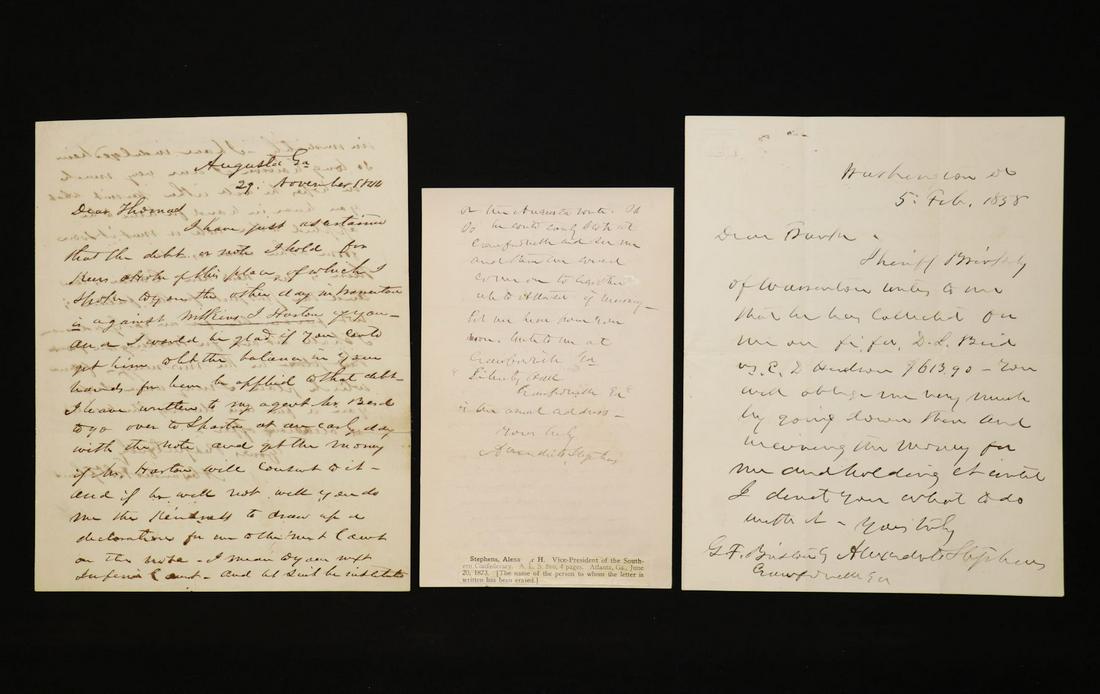 Augusta Ga
29. November 1846
Dear Thomas
I have just ascertained
that the debt or note I hold for
of this place of which I
spoke to you the other day in
is against J Harton of your
and I would be glad if you could
get him to let the balance in your
hands for him be applied to that debt
I have written to my agent Mr. Bird
to go over to Sparta at an early day
with the note and get the money
if Mr Harton will consent to it -
and if he will not will you do
me the kindness to draw up a
declaration for me to the next Court
on the note - I mean to your next
Inferior Court - and let suit be instituted
or the Augusta route. If
so he could easily stop at
Crawfordville and see me
and then we could
come on to
Let me hear from you
soon. Write to me at
Crawfordville Ga
Liberty Hall
Crawfordville Ga
is the usual address -
Yours truly
Alexander H. Stephens
Stephens, Alexa r H. Vice-President of the South-
ern Confederacy. A. L. S. 8vo, 4 pages. Atlanta, Ga., June
20, 1873. [The name of the person to whom the letter is
written has been erased.]
Washington DC
5. Feb. 1858
Dear
Sheriff
of Warrenton writes to me
that he has collected on
me on fi. fa. D. L. Bird
vs. C. D Hudson $613.90 - You
will oblige me very much
by going down there and
receiving the money for
me and holding it until
I direct you what to do
with it - Yours truly
G. F. Bristow Alexander H Stephens
Crawfordville Ga